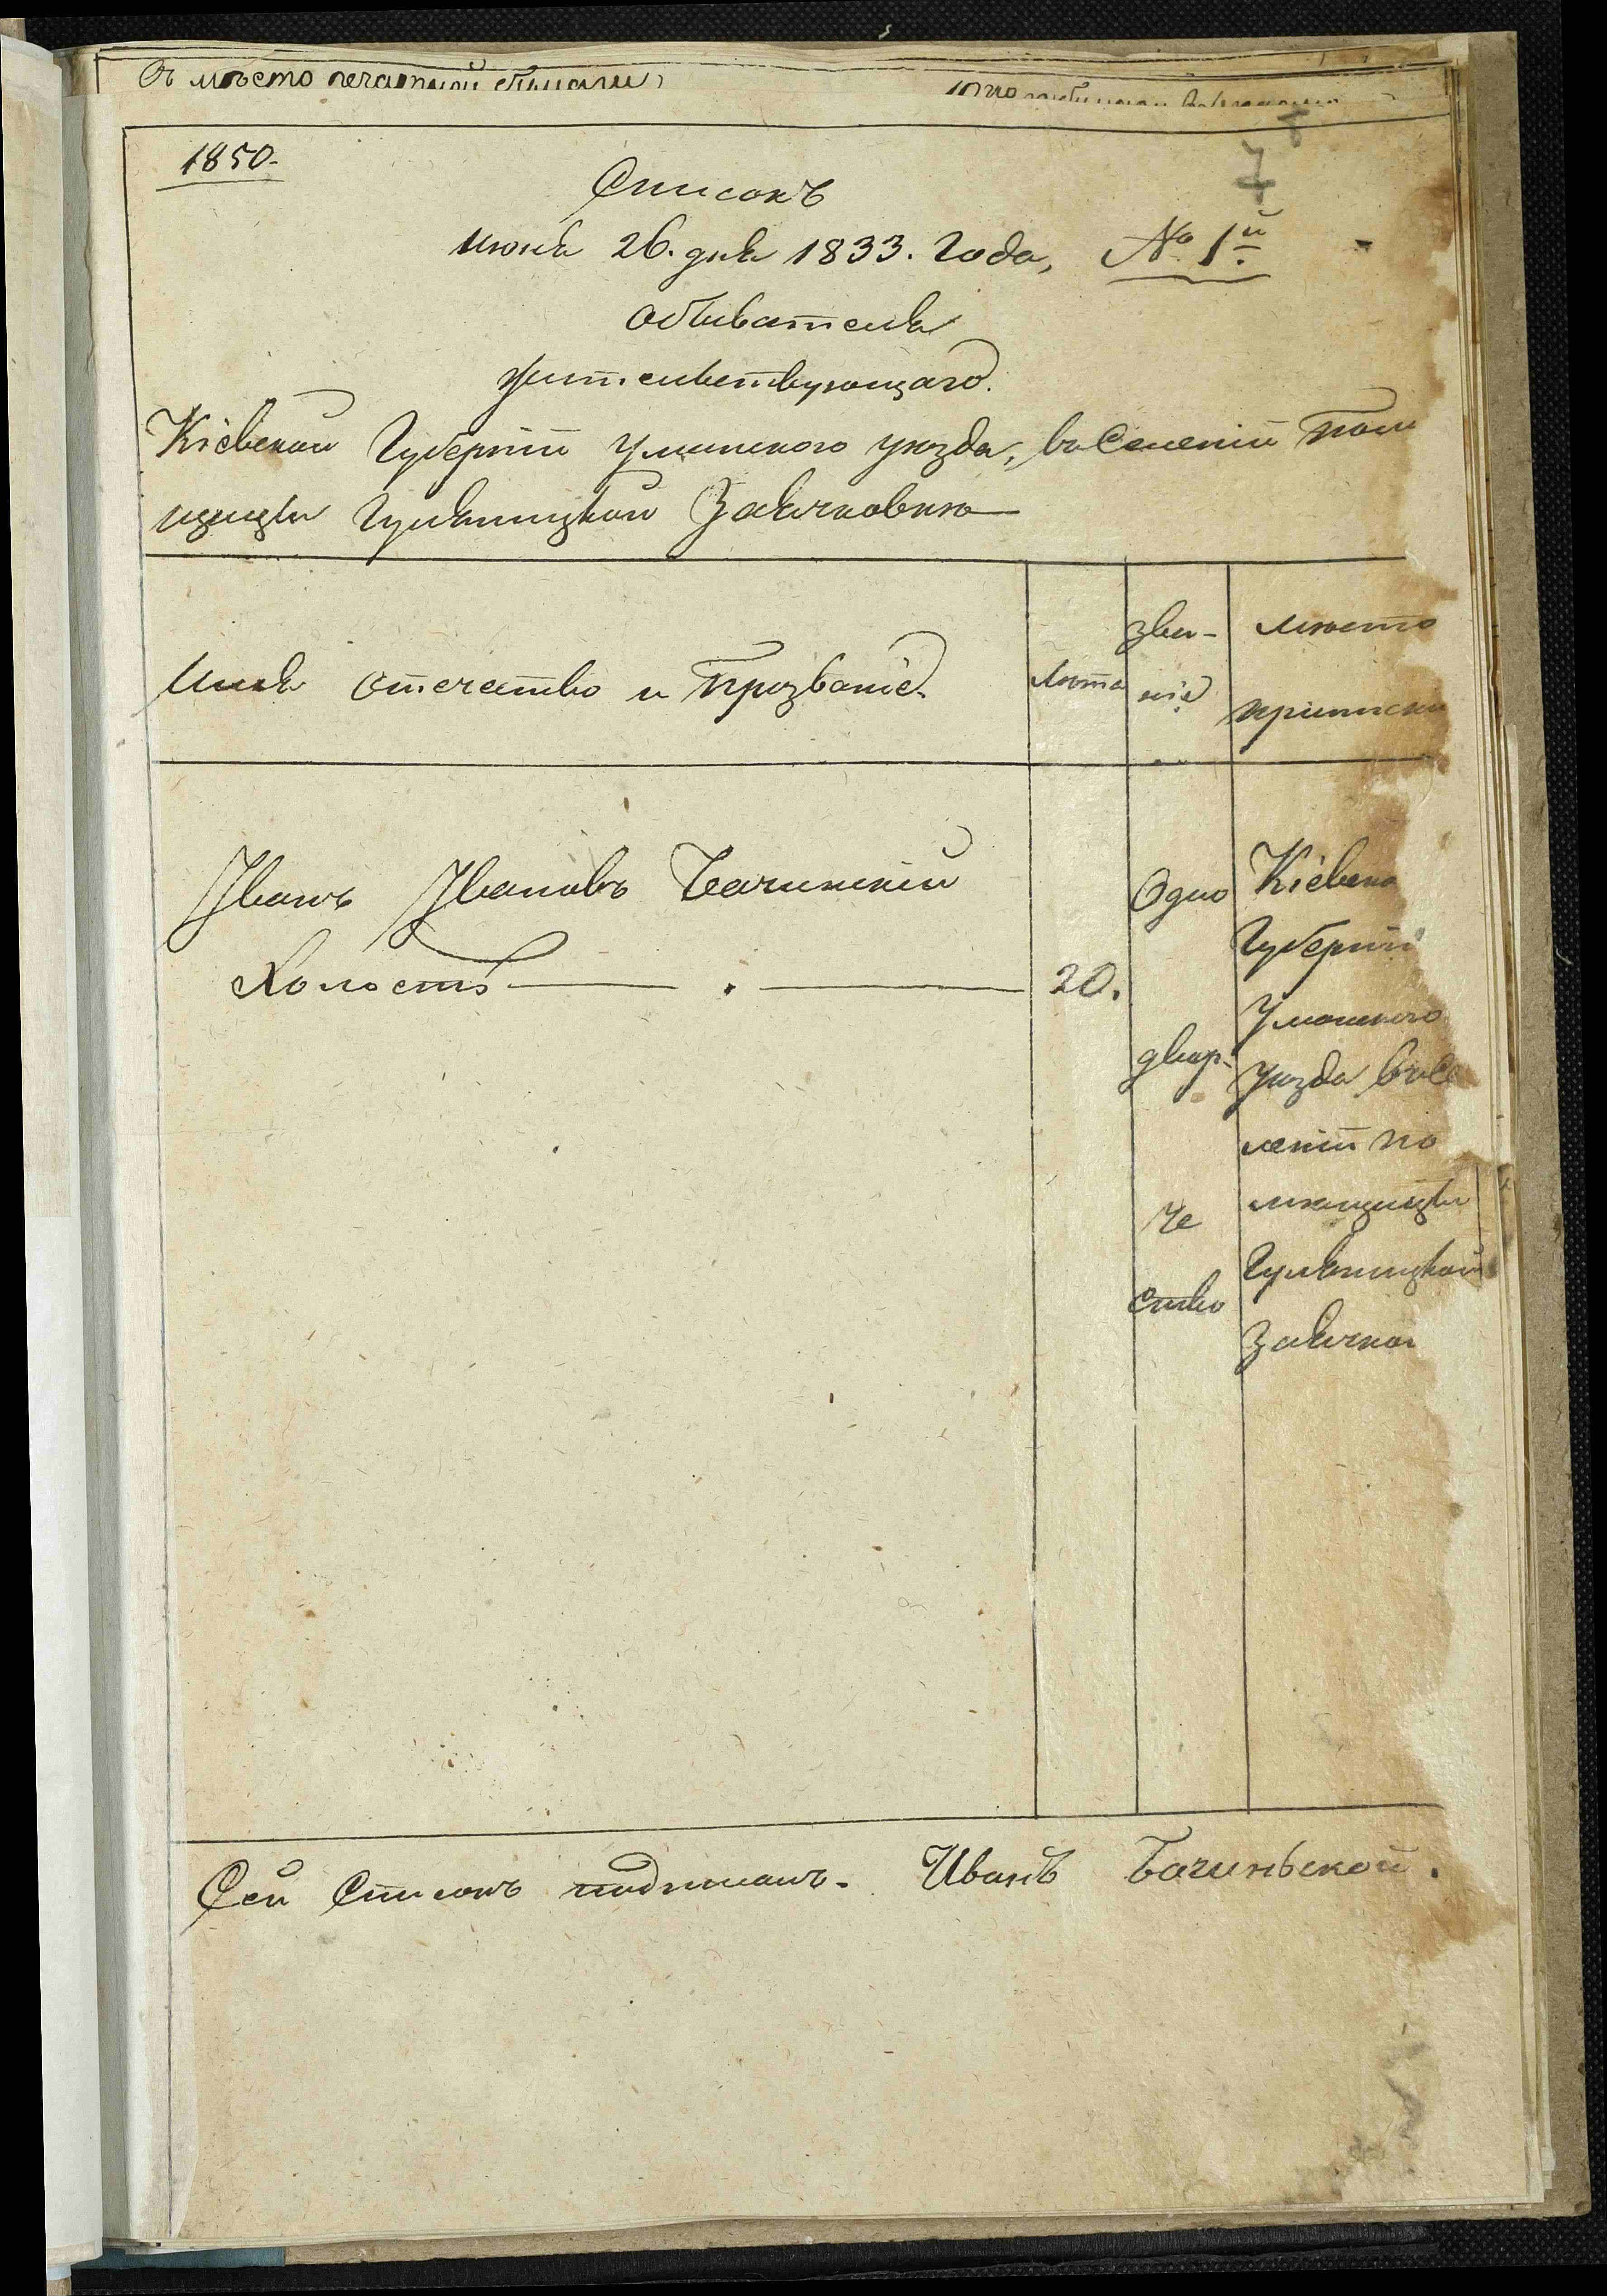 въ место печатной бумаги
1850.
7
Списокъ
июня 26. дня 1833. Года, № 1й
обывателя
жительствующаго.
Кіевской Губерніи Уманского уезда, въ Селеніи Поме
щицы Гулѧницкой Заячковке
Имя отечество и Прозваніе.
Лета
зва-
ніе
место
приписки
Иванъ Ивановъ Бачинскій
Холостъ
20.
Одно
двор-
че
ство
Кіевско
Губерніи
Уманского
уезда в селе
леніи по
мещицы
Гуляницкой
Заячков
Сей Списокъ подписалъ. Иванъ Бачиньской.